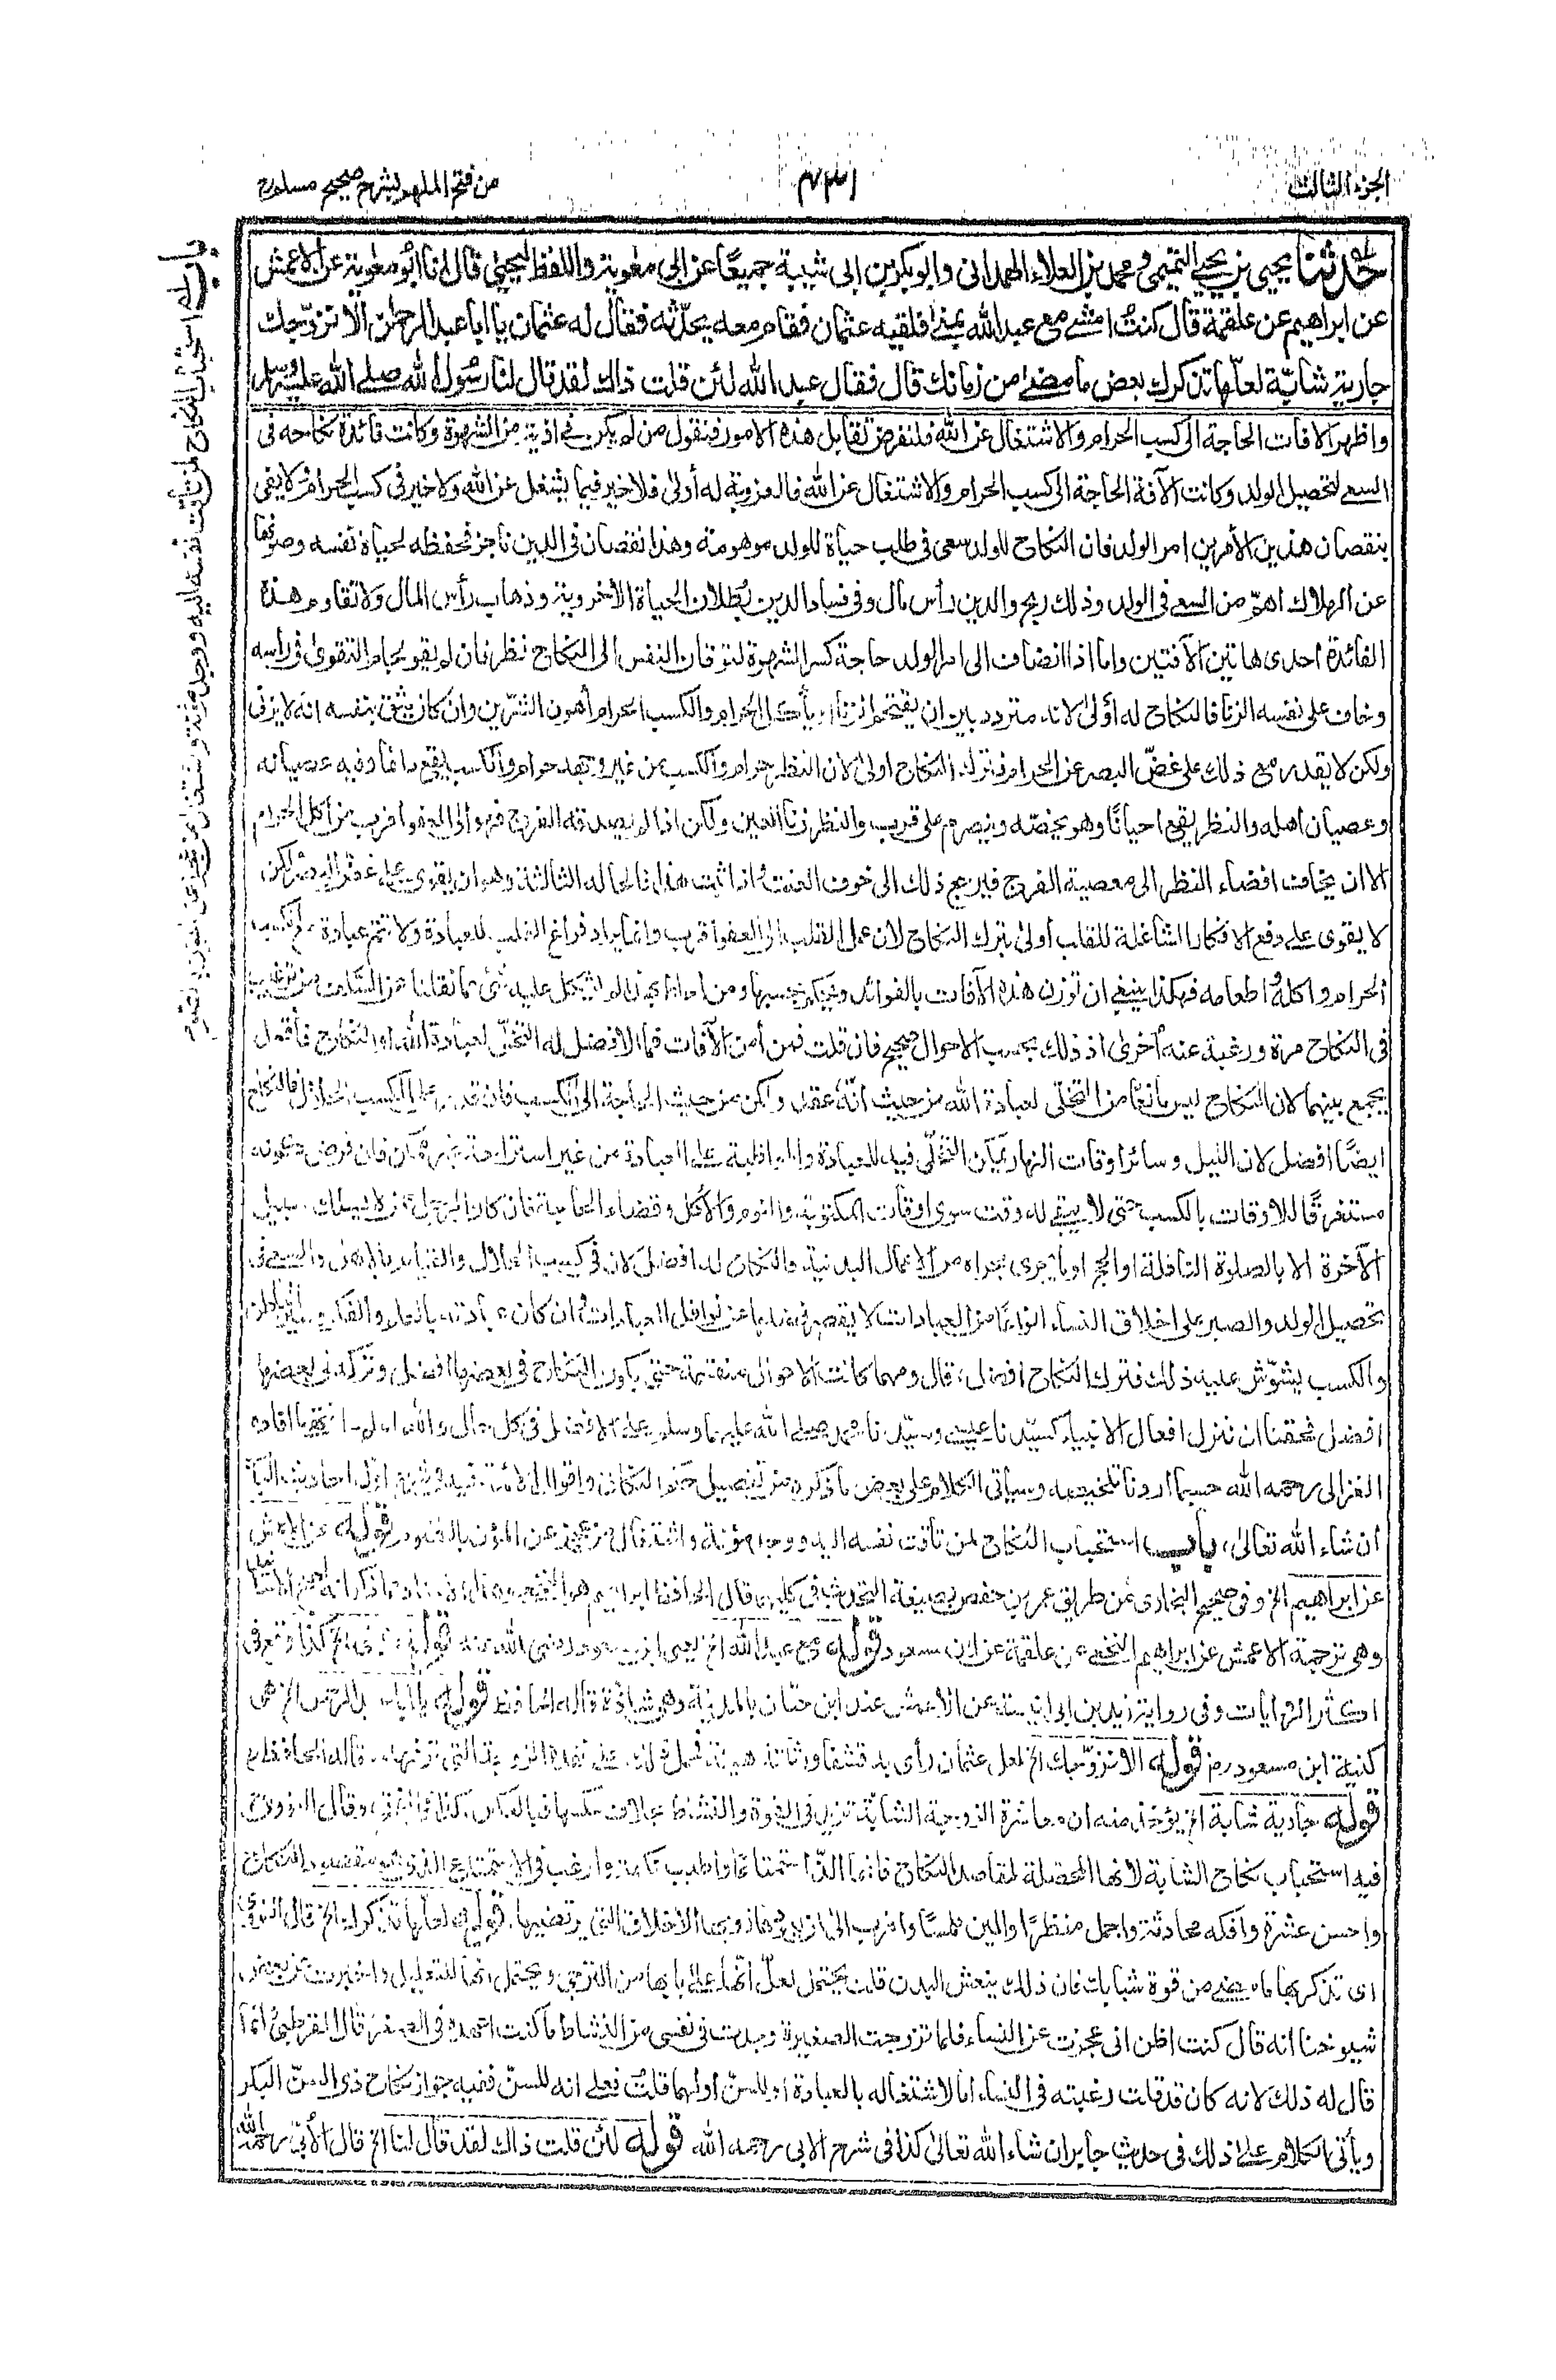 الجزء الثالث
٤٣١
من فتح الملهم بشرح صحيح مسلم
باب استحباب النكاح لمن تاقت نفسه اليه ووجد مؤنة واشتغال من عجز عن المؤن بالصوم
حدثنا يحيى بن يحيى التميمي ومحمد بن العلاء الهمداني وابو بكر بن ابي شيبة جميعًا عن ابي معٰوية واللفظ ليحيى قال انا ابو معٰوية عن الاعمش
عن ابراهيم عن علقمة قال كنت امشي مع عبد الله بمنى فلقيه عثمان فقام معه يحدّثه فقال له عثمان يا ابا عبد الرحمٰن الا نزوّجك
جارية شابّة لعلّها تذكرك بعض ما مضى من زمانك قال فقال عبد الله لئن قلت ذاك لقد قال لنا رسول الله صلى الله عليه وسلم
واظهر الآفات الحاجة الى كسب الحرام والاشتغال عن الله فلنفرض تقابل هذه الامور فنقول من لم يكن في اذية من الشهوة وكانت فائدة نكاحه في
السعي لتحصيل الولد وكانت الآفة الحاجة الى كسب الحرام والاشتغال عن الله فالعزوبة له أولى فلا خير فيما يشغل عن الله ولا خير في كسب الحرام ولا يفي
بنقصان هذين الأمرين امر الولد فان النكاح للولد سعى في طلب حياة للولد موهومة وهذا نقصان في الدين ناجز فحفظه لحياة نفسه وصونها
عن الهلاك اهمّ من السعي في الولد وذلك ربح والدين رأس مال وفي فساد الدين بطلان الحياة الأخروية وذهاب رأس المال ولا تقاوم هذه
الفائدة احدى هاتين الآفتين واما اذا انضاف الى امر الولد حاجة كسر الشهوة لتوقان النفس الى النكاح نظر فان لم يقو لجام التقوى في رأسه
وخاف على نفسه الزنا فالنكاح له أولى لانه متردد بين ان يقتحم الزنا او يأكل الحرام والكسب الحرام أهون الشرّين وان كان يثق بنفسه انه لا يزني
ولكن لا يقدر مع ذلك على غضّ البصر عن الحرام فترك النكاح اولى لان النظر حرام والكسب من غير وجهه حرام والكسب يقع دائما وفيه عصيانه
وعصيان اهله والنظر يقع احيانًا وهو يخصّه وينصرم على قريب والنظر زنا العين ولكن اذا لم يصدقه الفرج فهو الى العفو اقرب من أكل الحرام
الا ان يخاف افضاء النظر الى معصية الفرج فيرجع ذلك الى خوف العنت واذا ثبت هذا فالحالة الثالثة وهو ان يقوى على غضّ البصر ولكن
لا يقوى على دفع الافكار الشاغلة للقلب أولى بترك النكاح لان عمل القلب الى العفو اقرب وانما يراد فراغ القلب للعبادة ولا تتم عبادة مع الكسب
الحرام واكله واطعامه فهكذا ينبغي ان توزن هذه الآفات بالفوائد ويحكم بحسبها ومن احاط بهذا لم يشكل عليه شئ مما نقلنا عن السلف من ترغيب
في النكاح مرة ورغبة عنه أخرى اذ ذلك بحسب الاحوال صحيح فان قلت فمن أمن الآفات فما الافضل له التخلّي لعبادة الله او النكاح فأقول
يجمع بينهما لان النكاح ليس مانعًا من التخلّي لعبادة الله من حيث انّه عقد ولكن من حيث الحاجة الى الكسب فان قدر على الكسب الحلال فالنكاح
ايضًا افضل لان الليل وسائر اوقات النهار يمكن التخلّي فيه للعبادة والمواظبة على العبادة من غير استراحة غير ممكن فان فرض كونه
مستغرقًا للاوقات بالكسب حتى لا يبقى له وقت سوى اوقات المكتوبة والنوم والأكل وقضاء الحاجة فان كان الرجل ممن لا يسلك سبيل
الآخرة الا بالصلوة النافلة او الحج او ما يجري مجراه من الاعمال البدنية فالنكاح له افضل لان في كسب الحلال والقيام بالاهل والسعي في
تحصيل الولد والصبر على اخلاق النساء انواعًا من العبادات لا يقصر فضلها عن نوافل العبادات وان كان عبادته بالعلم والفكر وسير الباطن
والكسب يشوّش عليه ذلك فترك النكاح افضل، قال ومهما كانت الاحوال منقسمة حتى يكون النكاح في بعضها افضل وتركه في بعضها
افضل فحقنا ان ننزل افعال الانبياء كسيّدنا عيسى وسيّدنا محمد صلى الله عليهما وسلم على الافضل في كل حال والله اعلم انتهى ما افاده
الغزالي رحمه الله حسبما اردنا تلخيصه وسيأتي الكلام على بعض ما ذكره من تفصيل حكم النكاح واقوال الائمة فيه في شرح اول احاديث الباب
ان شاء الله تعالى، باب استحباب النكاح لمن تاقت نفسه اليه ووجد مؤنة واشتغال من عجز عن المؤن بالصوم قوله عن الاعمش
عن ابراهيم الخ وفي صحيح البخاري من طريق عمر بن حفص بصيغة التحديث في كليهما قال الحافظ ابراهيم هو النخعي
وهي ترجمة الاعمش عن ابراهيم النخعي عن علقمة عن ابن مسعود قوله مع عبد الله الخ يعني ابن مسعود رضي الله عنه قوله بمنى الخ كذا وقع في
اكثر الروايات وفي رواية زيد بن ابي انيسة عن الاعمش عند ابن حبّان بالمدينة وهي شاذة قاله الحافظ قوله يا ابا عبد الرحمٰن الخ هي
كنية ابن مسعود رض قوله الا نزوّجك الخ لعل عثمان رأى به قشفا ورثاثة هيئة فحمل ذلك على فقده الزوجة التي ترفهه قاله الحافظ رح
قوله جارية شابة الخ يؤخذ منه ان معاشرة الزوجة الشابّة تزيد في القوة والنشاط بخلاف عكسها فبالعكس كذا في الفتح، وقال النووي
فيه استحباب نكاح الشابة لانها المحصلة لمقاصد النكاح فانها الذّ استمتاعًا واطيب نكهة وارغب في الاستمتاع الذي هو مقصود النكاح
واحسن عشرة وأفكه محادثة واجمل منظرًا والين ملمسًا واقرب الى ان يعوّدها زوجها الأخلاق التي يرتضيها، قوله لعلها تذكرك الخ قال النووي
اي تذكر بها ما مضى من قوة شبابك فان ذلك ينعش البدن قلت يحتمل لعلّ انها على بابها من الترجي ويحتمل انها للتعليل واخبرت عن بعض
شيوخنا انه قال كنت اظن اني عجزت عن النساء فلما تزوجت الصغيرة وجدت في نفسي من النشاط ما كنت اعهده في الصغر قال القرطبي انما
قال له ذلك لانه كان قد قلت رغبته في النساء اما لاشتغاله بالعبادة او للسنّ او لهما قلت فعلى انه للسنّ ففيه جواز نكاح ذي السنّ البكر
ويأتي الكلام على ذلك في حديث جابر ان شاء الله تعالى كذا في شرح الابي رحمه الله قوله لئن قلت ذاك لقد قال لنا الخ قال الأبيّ رحمه الله